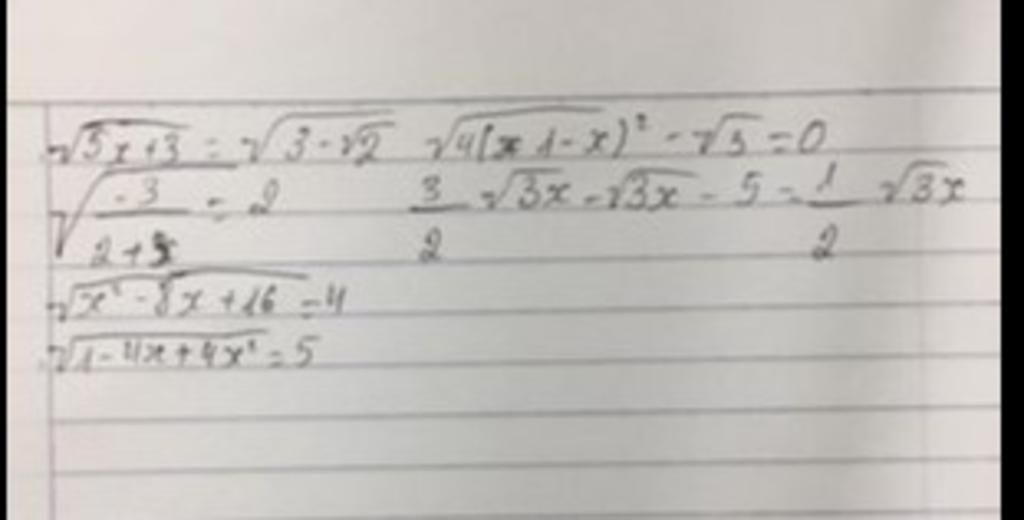 √5x+3 = √3-√2 √4(x 1-x)² - √3 = 0
√-3/2+x = 2 3/2 √3x - √3x - 5 = 1/2 √3x
√x²-8x+16 = 4
√1-4x+4x² = 5